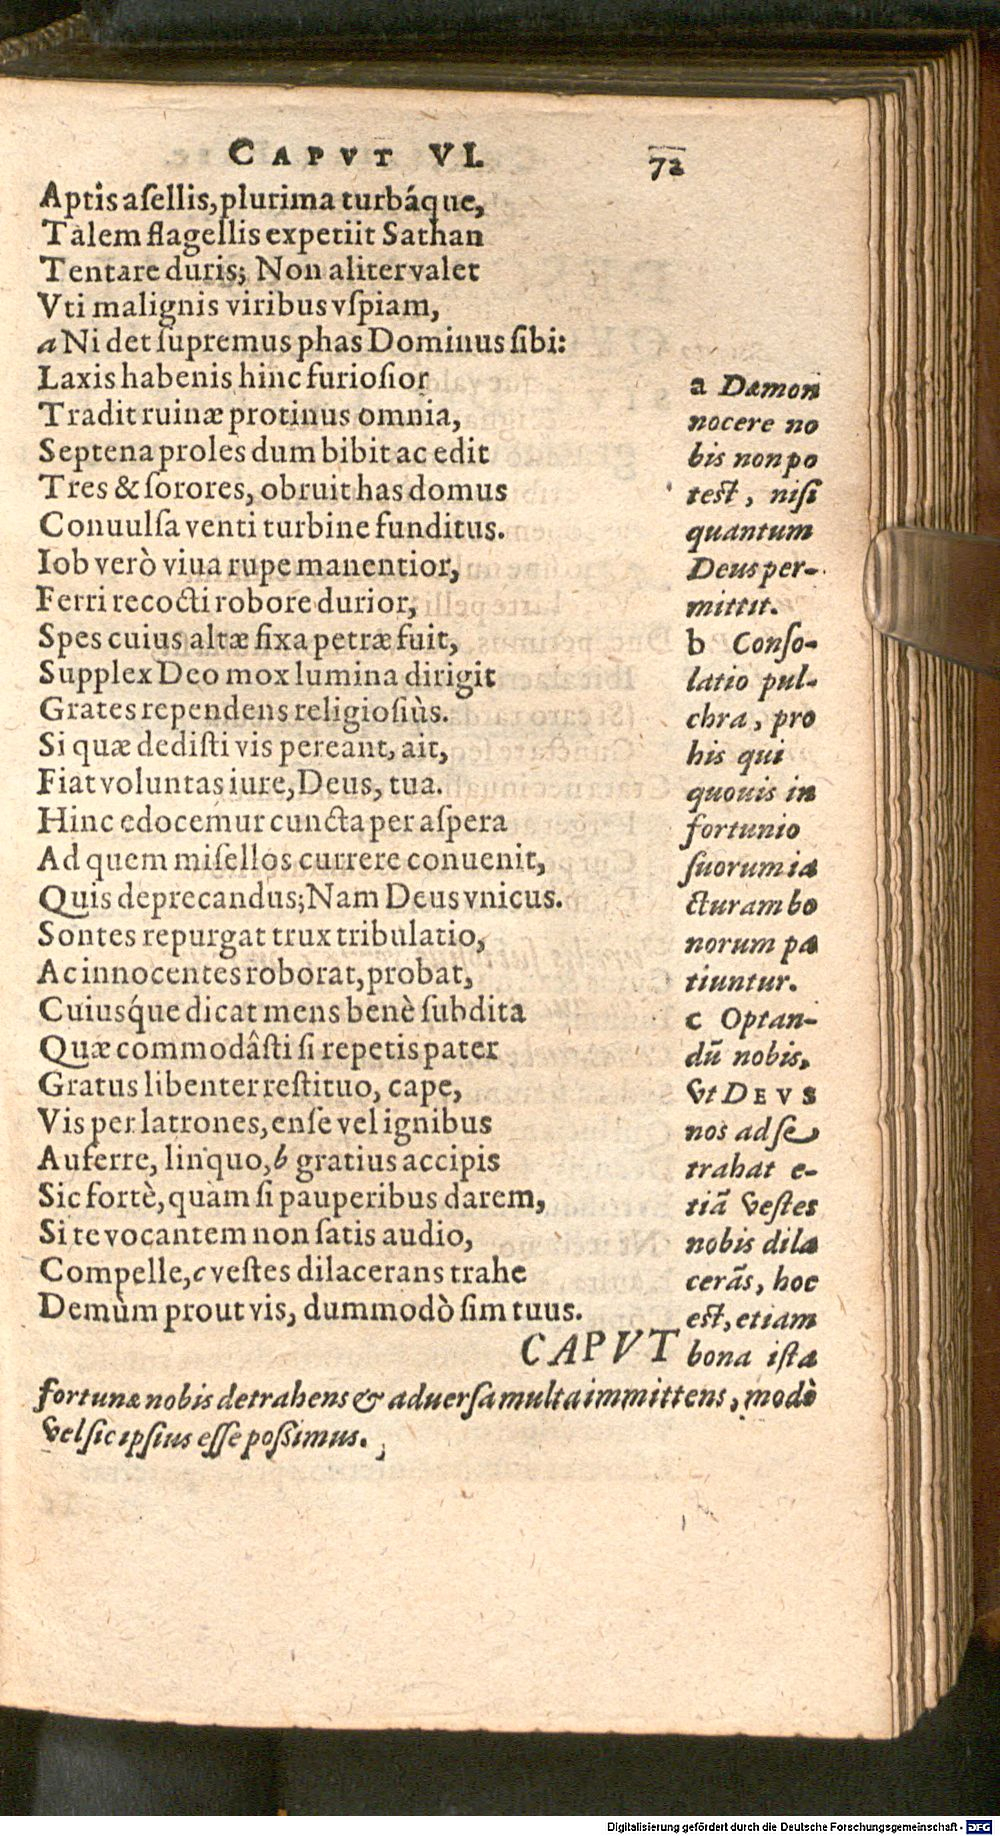 CAPVT VI. 72
Aptis asellis, plurima turbáque,
Talem flagellis expetiit Sathan
Tentare duris; Non aliter valet
Vti malignis viribus vspiam,
a Ni det supremus phas Dominus sibi:
Laxis habenis hinc furiosior
Tradit ruinæ protinus omnia,
Septena proles dum bibit ac edit
Tres & sorores, obruit has domus
Conuulsa venti turbine funditus.
Iob verò viua rupe manentior,
Ferri recocti robore durior,
Spes cuius altæ fixa petræ fuit,
Supplex Deo mox lumina dirigit
Grates rependens religiosiùs.
Si quæ dedisti vis pereant, ait,
Fiat voluntas iure, Deus, tua.
Hinc edocemur cuncta per aspera
Ad quem misellos currere conuenit,
Quis deprecandus; Nam Deus vnicus.
Sontes repurgat trux tribulatio,
Ac innocentes roborat, probat,
Cuiusq́ue dicat mens benè subdita
Quæ commodâsti si repetis pater
Gratus libenter restituo, cape,
Vis per latrones, ense vel ignibus
Auferre, linquo, b gratius accipis
Sic fortè, quàm si pauperibus darem,
Si te vocantem non satis audio,
Compelle, c vestes dilacerans trahe
Demùm prout vis, dummodò sim tuus.
CAPVT
a Dæmon
nocere no
bis non po
test, nisi
quantum
Deus per-
mittit.
b Conso-
latio pul-
chra, pro
his qui
quouis in
fortunio
suorum ia
cturam bo
norum pa
tiuntur.
c Optan-
dū nobis,
vt DEVS
nos ad se
trahat e-
tiā vestes
nobis dila
cerās, hoc
est, etiam
bona ista
fortunæ nobis detrahens & aduersa multa immittens, modò
vel sic ipsius esse possimus.
Digitalisierung gefördert durch die Deutsche Forschungsgemeinschaft - DFG